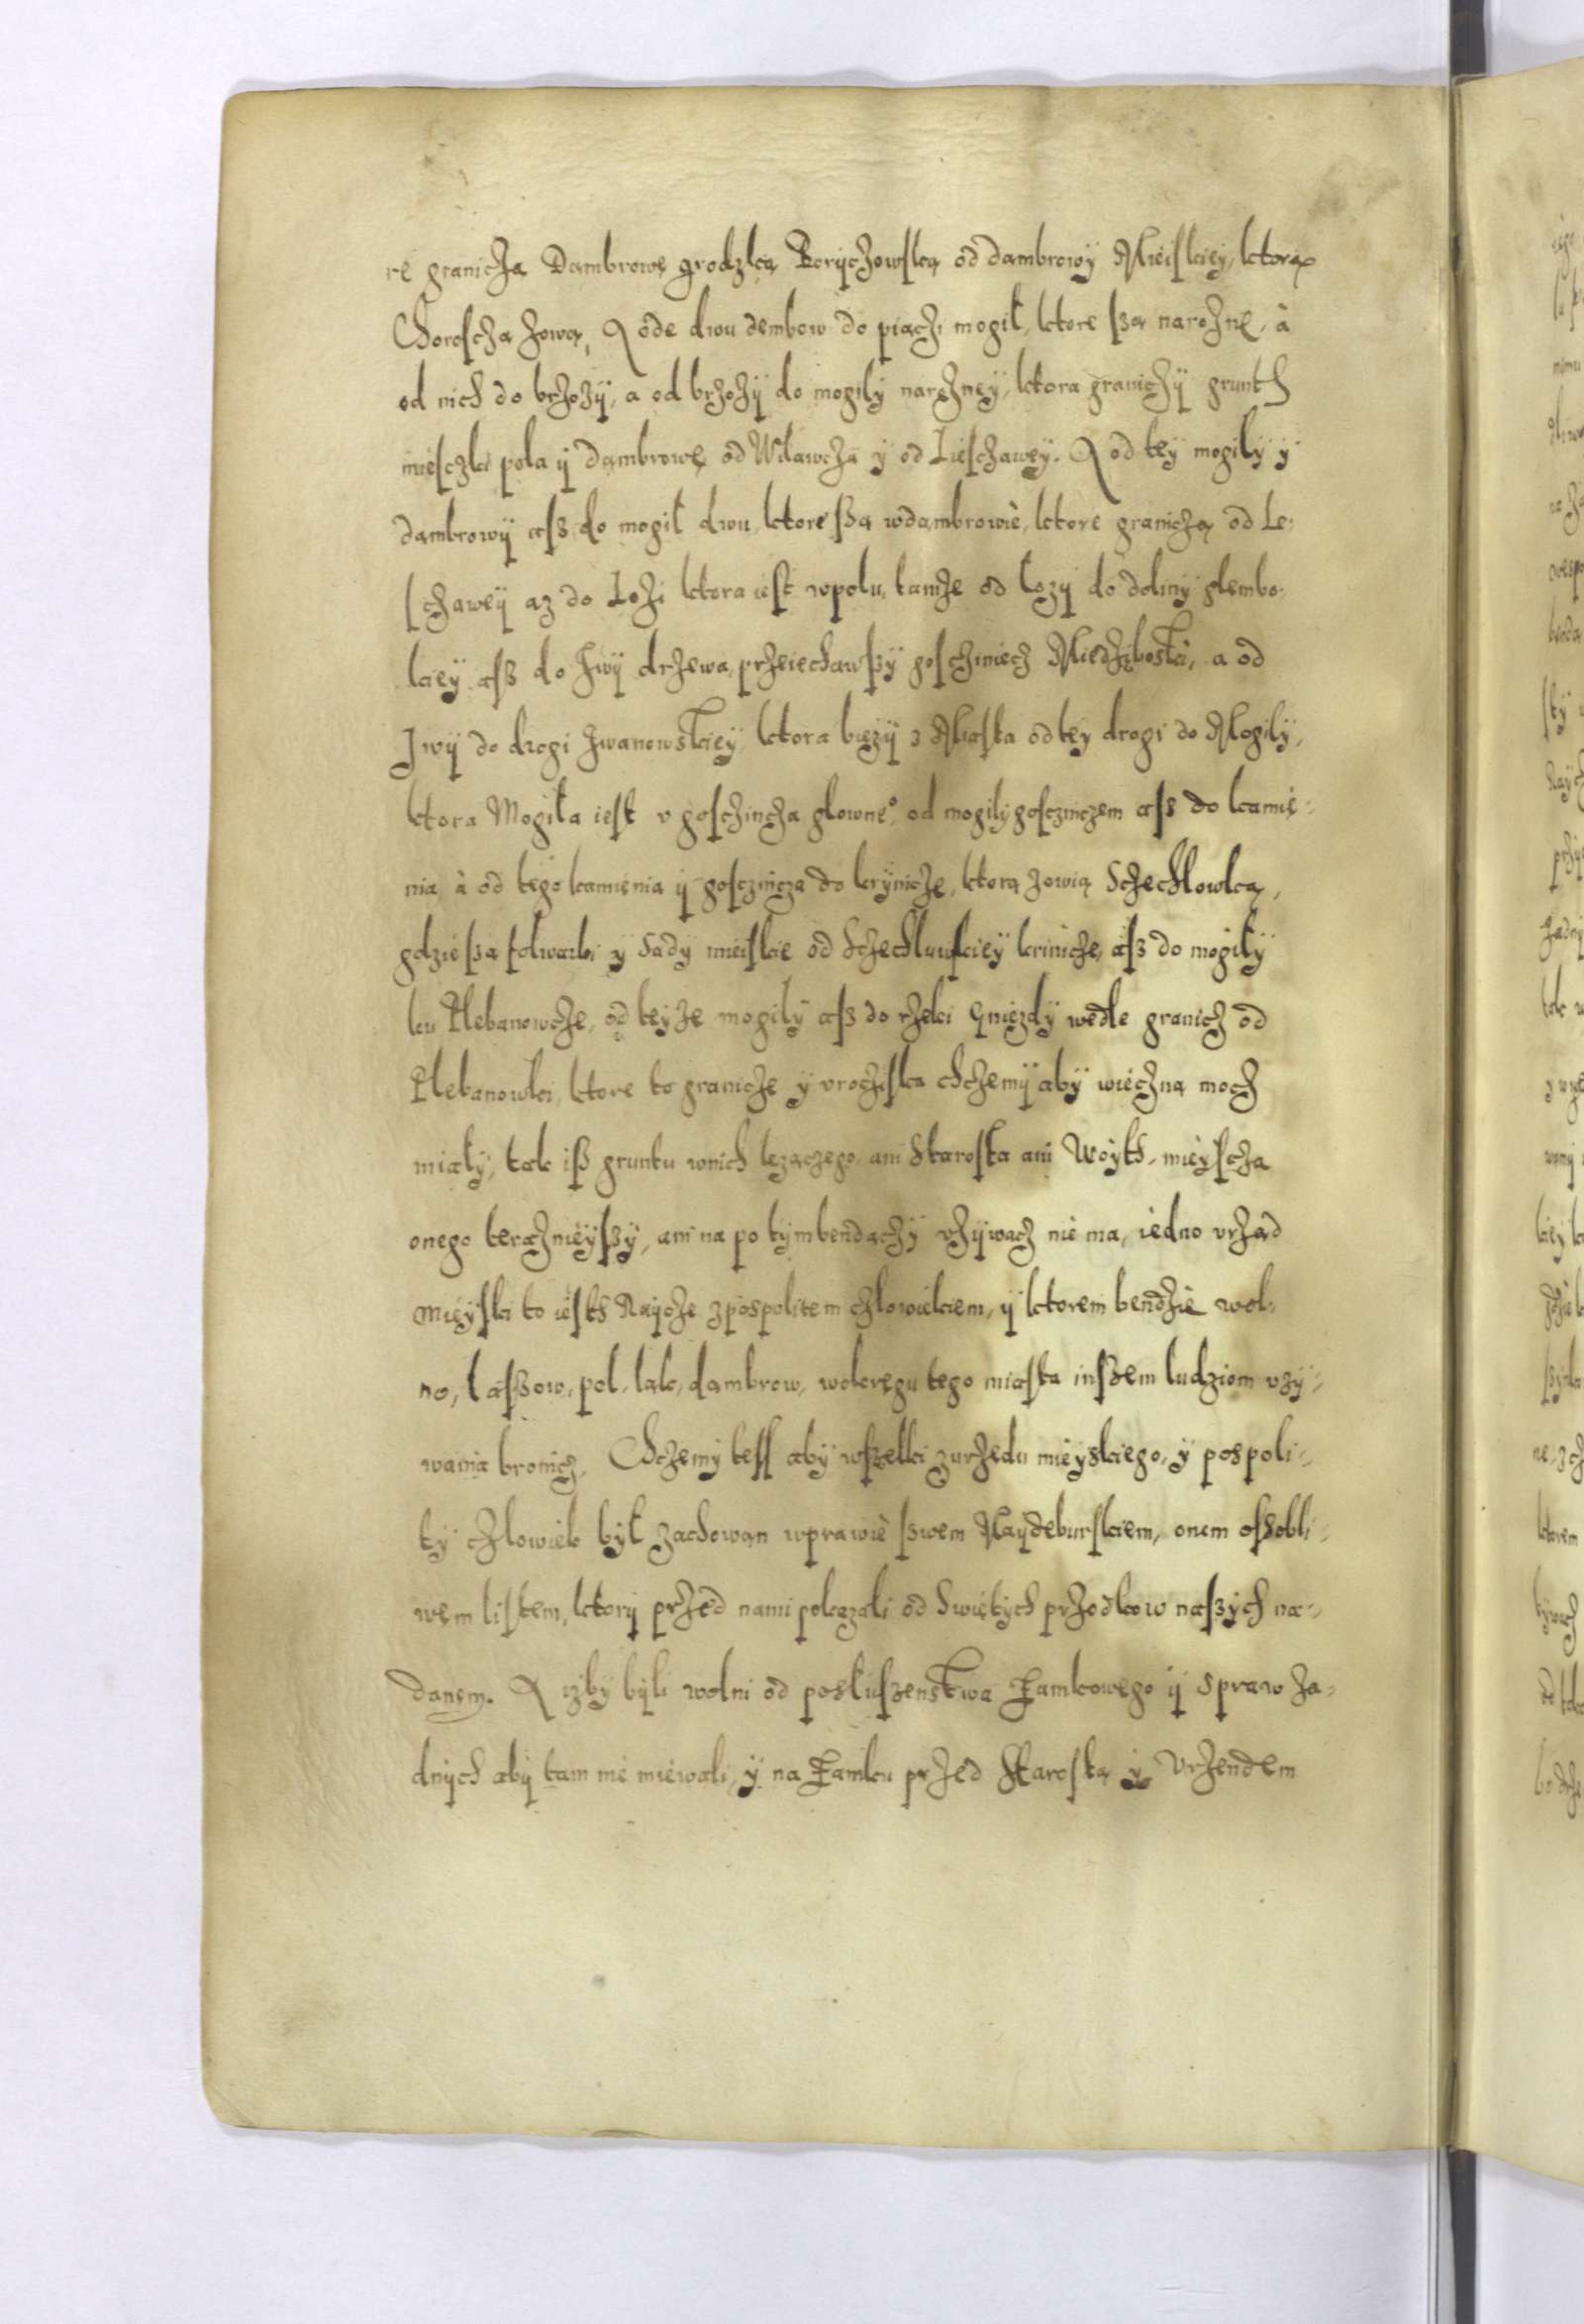 re granicza Dambrowę grodzką Borÿchowską od dambrowÿ Mieiskieÿ, ktorą
Choroscha zową, A ode dwu dembow do piączi mogił, ktore są narożne, à
od nich do brzozÿ, a od brzozÿ do mogiłÿ narożneÿ, ktora graniczÿ grunth
miesczki pola ÿ dambrowę od Wławcza ÿ od Lieschaweÿ. A od teÿ mogiłÿ ÿ
dambrowÿ asz do mogił dwu, ktore ßą wdambrowiè, ktore graniczą od Le-
schaweÿ az do Lozi ktora iest wpolu, tamże od Lozÿ do dolinÿ glembo-
kieÿ asz do Jwÿ drzewa, przeiechawszÿ goscziniecz Miedziboski, a od
Jwÿ do drogi Jwanowskieÿ, ktora bieżÿ z Miasta od teÿ drogi do Mogiłÿ,
ktora Mogiła iest v goschincza głowne°, od mogiłÿ gosczinczem asz do kamie-
nia à od tego kamienia ÿ gosczincza do krÿnicze, ktorą zowią Sczechłowką,
gdzie są folwarki ÿ Sadÿ mieiskie od Sczechłuwskieÿ krinicze, asz do mogiłÿ
ku Plebanowcze, od teÿże mogiłÿ asz do rzeki Gniezdÿ wedłe granicz od
Plebanowki, ktore to granicze ÿ vrocziska chczemÿ abÿ wieczną mocz
miałÿ, tak iß gruntu wnich lezączego, ani Starosta ani Woÿth, mieÿscza
onego teraznieÿszÿ, ani na po tÿm bendączÿ vżÿwacz nie ma, iedno vrząd
mieÿski to iesth Raÿcze zpospolitem człowiekiem, ÿ ktorem bendzie wol-
no, Laßow, pol, łąk, dambrow, wokręgu tego miasta inßem ludziom vzÿ-
wania bronicz. Chczemÿ teß abÿ wßelki zurzędu mieÿskiego, ÿ pospoli-
tÿ człowiek bÿł zachowan wprawiè swem Maÿdeburskiem, onem osobli-
wem listem, ktorÿ przed nami pokazali od Swiętÿch przodkow naszÿch na-
danem. A izbÿ bÿli wolni od posłuszenstwa Zamkowego ÿ spraw ża-
dnÿch abÿ tam nie miewali, ÿ na Zamku przed Starostą ÿ Vrzendem